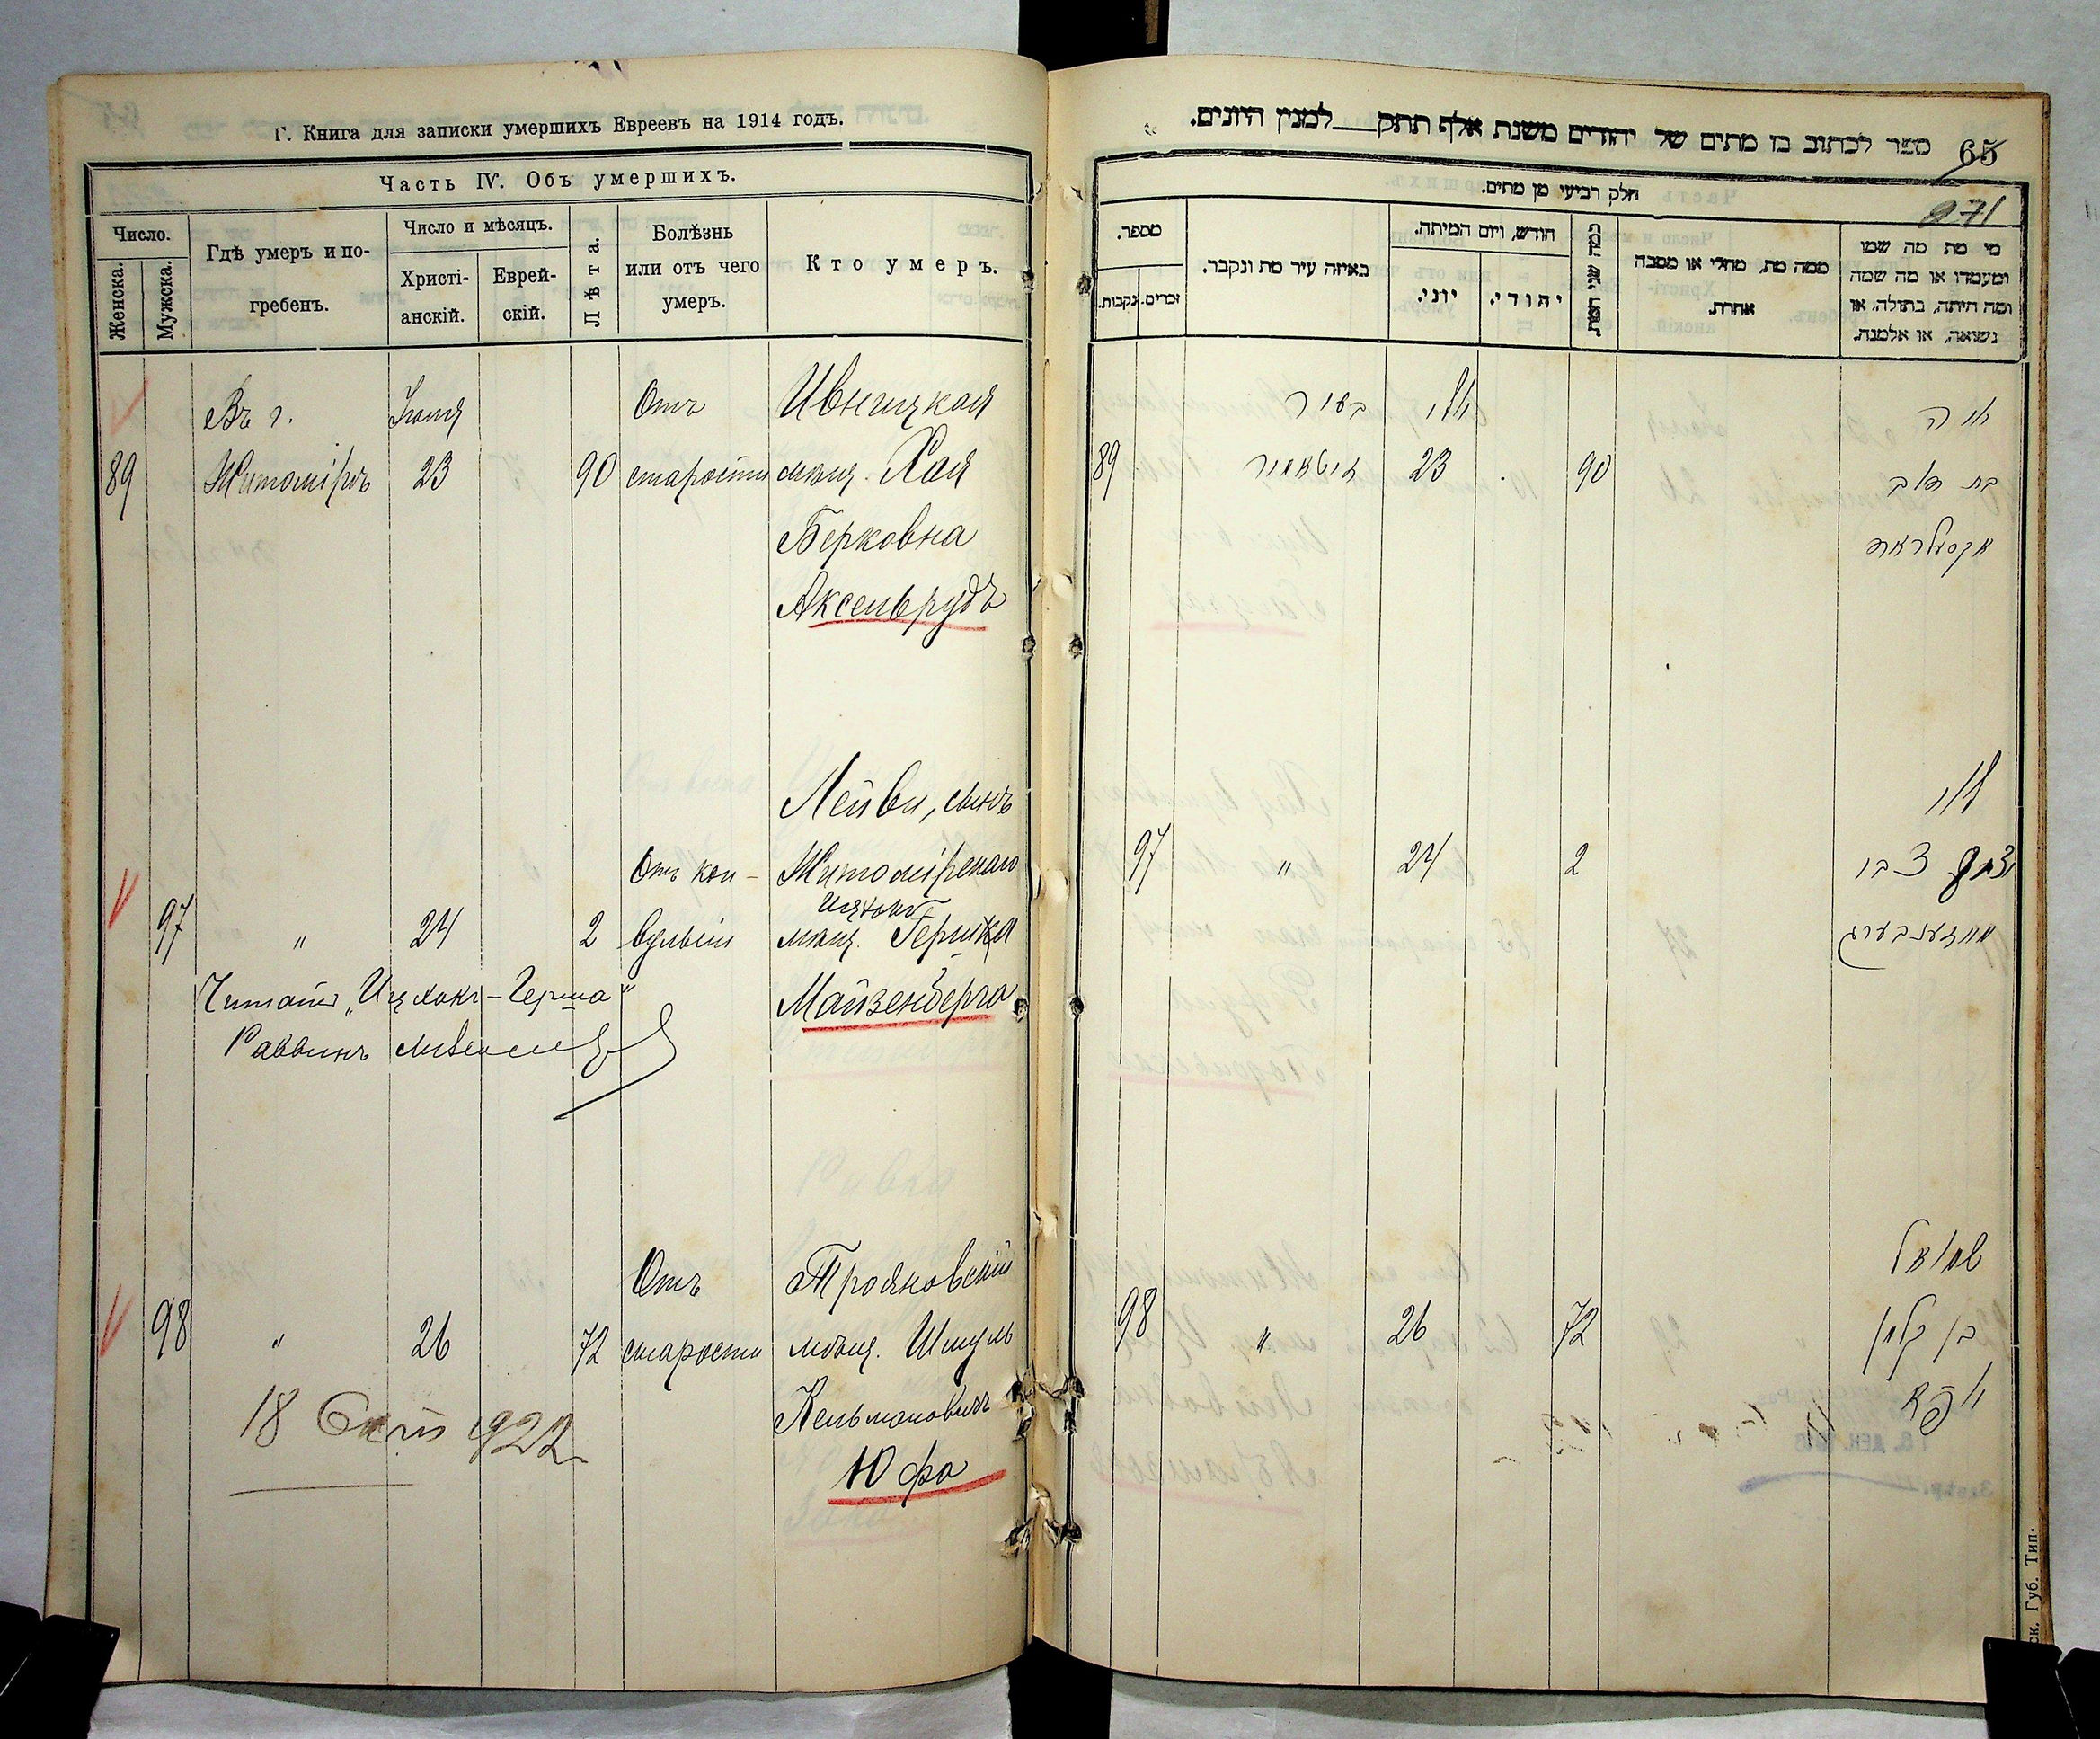 Г. Книга для записки умершихъ Евреевъ на 1914 годъ.
Часть IV. Объ умершихъ.
Число.
Женска.
Мужска.
Гдѣ умеръ и по-
гребенъ.
Число и мѣсяцъ.
Христі-
анскій.
Еврей-
скій.
Лѣта.
Болѣзнь
или отъ чего
умеръ.
Кто умеръ.
Въ г. Іюня Отъ Ивницкая
89 Житомірѣ 23 90 старости мѣщ. Хая
Берковна
Аксельрудъ
Лейви, сынъ
Отъ кон- Житомірскаго
Ицхокъ
97 " 24 2 вульсіи мѣщ. Герша
Читать „Ицхокъ-Герша"
Майзенберга
Раввинъ
Отъ Трояновскій
98 " 26 72 старости мѣщ. Шмуль
Кельмановичъ
18 1922
Юфа
ספר לכתוב בו מתים של יהודים משנת אלף תתק למנין היונים.
65
271
חלק רביעי מן מתים.
מספר.
נקבות.
זכרים.
באיזה עיר מת ונקבר.
חודש, ויום המיתה.
יוני.
יהודי.
כמה שני המת.
ממה מת, מחלי או מסבה
אחרת.
מי מת מה שמו
ומעמדו או מה שמה
ומה היתה, בתולה, או
נשואה, או אלמנה.
חיה יוני בעיר
89 זיטאמיר 23 90
בת
אקסעלראד
לוי
97 " 24 2 צבי
מייזענבערג
שמואל
98 " 26 72 בן קלמן
יאפע
ск. Губ. Тип.